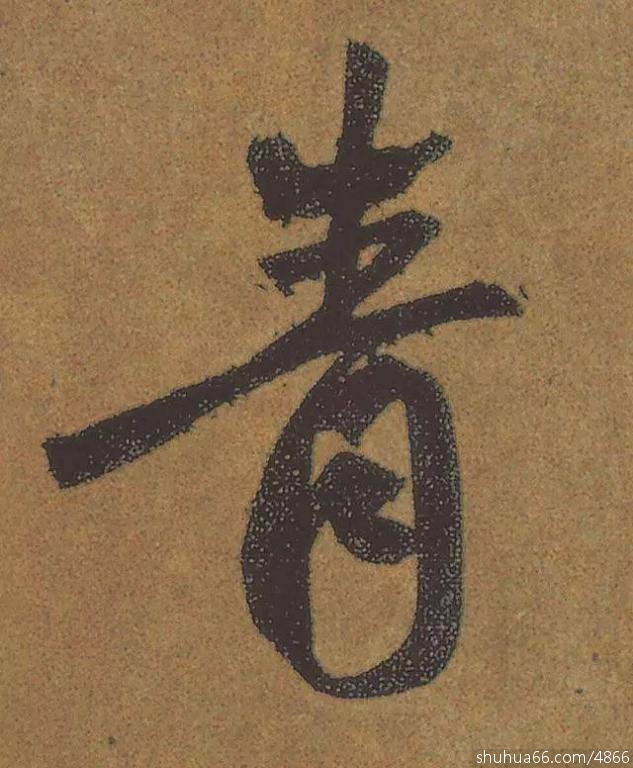 青
shuhua66.com/4866